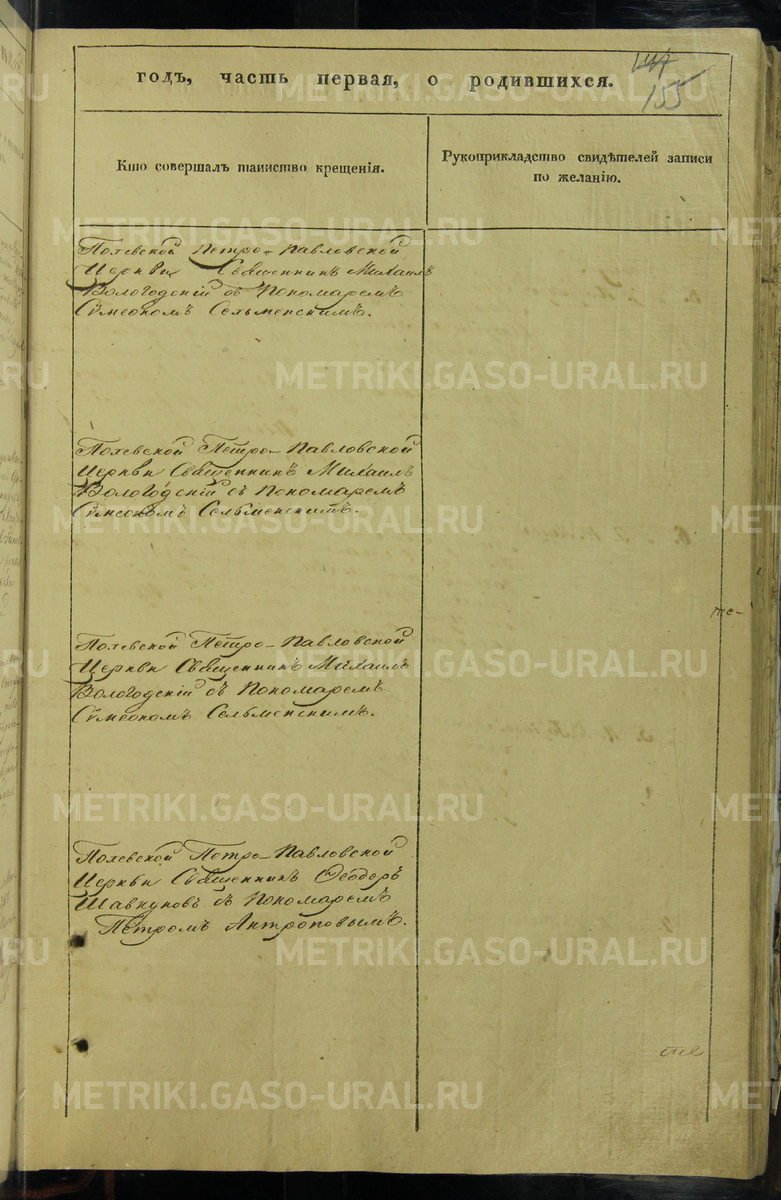 годъ, часть первая, о родившихся.
147
155
Кто совершалъ таинство крещенія.
Рукоприкладство свидѣтелей записи
по желанію.
Полевской Петро-Павловской
Церкви Священникъ Михаилъ
Вологодскій съ Пономаремъ
Сѵмеономъ Сельменскимъ.
Полевской Петро-Павловской
Церкви Священникъ Михаилъ
Вологодскій съ Пономаремъ
Сѵмеономъ Сельменскимъ.
Полевской Петро-Павловской
Церкви Священникъ Михаилъ
Вологодскій съ Пономаремъ
Сѵмеономъ Сельменскимъ.
Полевской Петро-Павловской
Церкви Священникъ Ѳеодоръ
Шавкуновъ съ Пономаремъ
Петромъ Антроповымъ.
METRIKI.GASO-URAL.RU